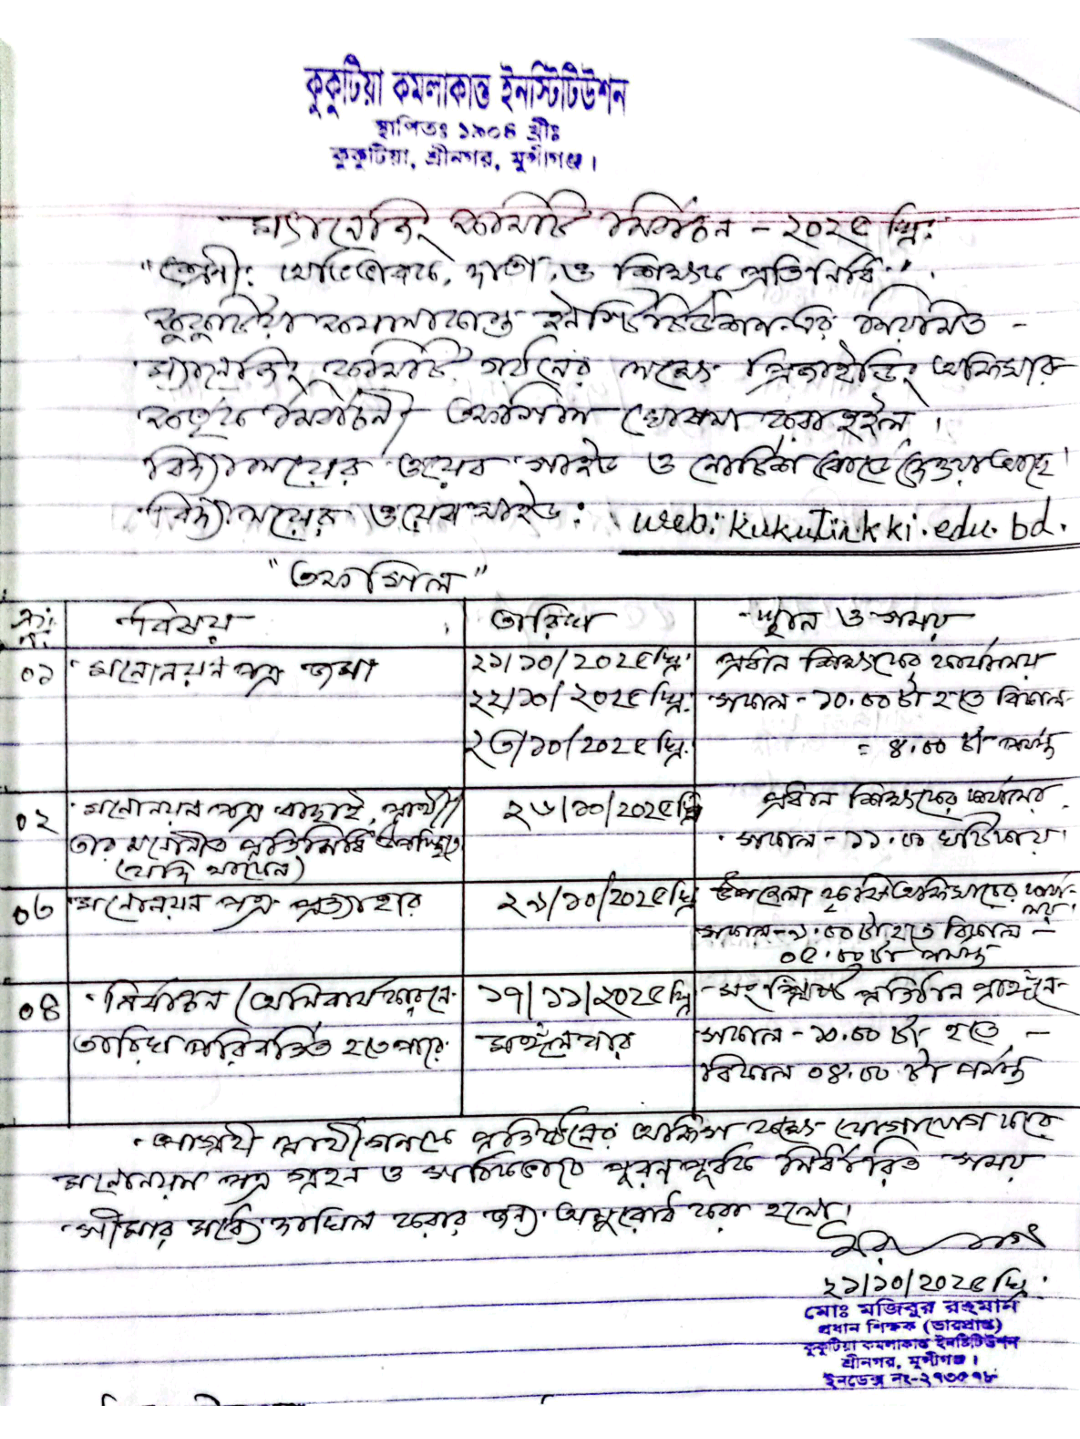 কুকুটিয়া কমলাকান্ত ইনস্টিটিউশন
স্থাপিতঃ ১৯০৪ খ্রীঃ
কুকুটিয়া, শ্রীনগর, মুন্সীগঞ্জ।
ম্যানেজিং কমিটি নির্বাচন - ২০২৫ খ্রি:
অভিভাবক, দাতা ও শিক্ষক প্রতিনিধি"
কুকুটিয়া কমলাকান্ত ইনস্টিটিউশন-এর নিয়মিত -
ম্যানেজিং কমিটি গঠনের লক্ষ্যে প্রিজাইডিং অফিসার
কর্তৃক নির্বাচনী তফসিল ঘোষনা করা হইল।
বিদ্যালয়ের ওয়েব সাইড ও নোটিশ বোর্ডে দেওয়া আছে।
বিদ্যালয়ের ওয়েব সাইড: web: kukutirkki.edu.bd.
"তফসিল"
ক্রঃ নং বিষয় তারিখ স্থান ও সময়
০১ মনোনয়ন পত্র জমা ২১/১০/২০২৫ খ্রি: প্রধান শিক্ষকের কার্যালয়
২২/১০/২০২৫ খ্রি: সকাল - ১০.০০ টা হতে বিকাল
২৩/১০/২০২৫ খ্রি: = ৪.০০ টা পর্যন্ত
০২ মনোনয়ন পত্র বাছাই, প্রার্থী/ ২৬/১০/২০২৫ খ্রি প্রধান শিক্ষকের কার্যালয়
তার মনোনীত প্রতিনিধি উপস্থিতে সকাল - ১১.০০ ঘটিকায়
(যদি থাকেন)
০৩ মনোনয়ন পত্র প্রত্যাহার ২৯/১০/২০২৫ খ্রি উপজেলা কৃষি অফিসারের কার্যালয়
সকাল - ৯.০০ টা হতে বিকাল -
০৫.০০ টা পর্যন্ত
০৪ নির্বাচন (অনিবার্য কারনে ১৭/১১/২০২৫ খ্রি সংশ্লিষ্ট প্রতিষ্ঠান প্রাঙ্গনে
তারিখ পরিবর্তিত হতে পারে মঙ্গলবার সকাল - ১০.০০ টা হতে -
বিকাল ০৪.০০ টা পর্যন্ত
আগ্রহী প্রার্থীগনকে প্রতিষ্ঠানের অফিস কক্ষে যোগাযোগ করে
মনোনয়ন পত্র গ্রহন ও সঠিকভাবে পূরন পূর্বক নির্ধারিত সময়
সীমার মধ্যে দাখিল করার জন্য অনুরোধ করা হলো।
২১/১০/২০২৫ খ্রি:
মোঃ মজিবুর রহমান
প্রধান শিক্ষক (ভারপ্রাপ্ত)
কুকুটিয়া কমলাকান্ত ইনস্টিটিউশন
শ্রীনগর, মুন্সীগঞ্জ।
ইনডেক্স নং-২৭৩৫৭৮